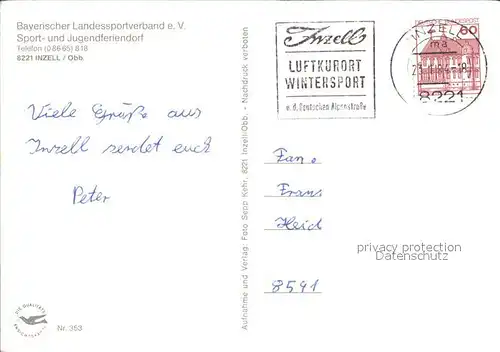 Bayerischer Landessportverband e. V.
Sport- und Jugendferiendorf
Telefon (08665) 818
8221 INZELL / Obb.
Inzell
LUFTKURORT
WINTERSPORT
a. d. Deutschen Alpenstraße
INZELL
ma
8221
60
Viele Grüße aus
Inzell sendet euch
Peter
Aufnahme und Verlag: Foto Sepp Kehr, 8221 Inzell-Obb. - Nachdruck verboten
Fam.
Frans
Heid
8591
privacy protection
Datenschutz
DIE QUALITÄTS
Nr. 353